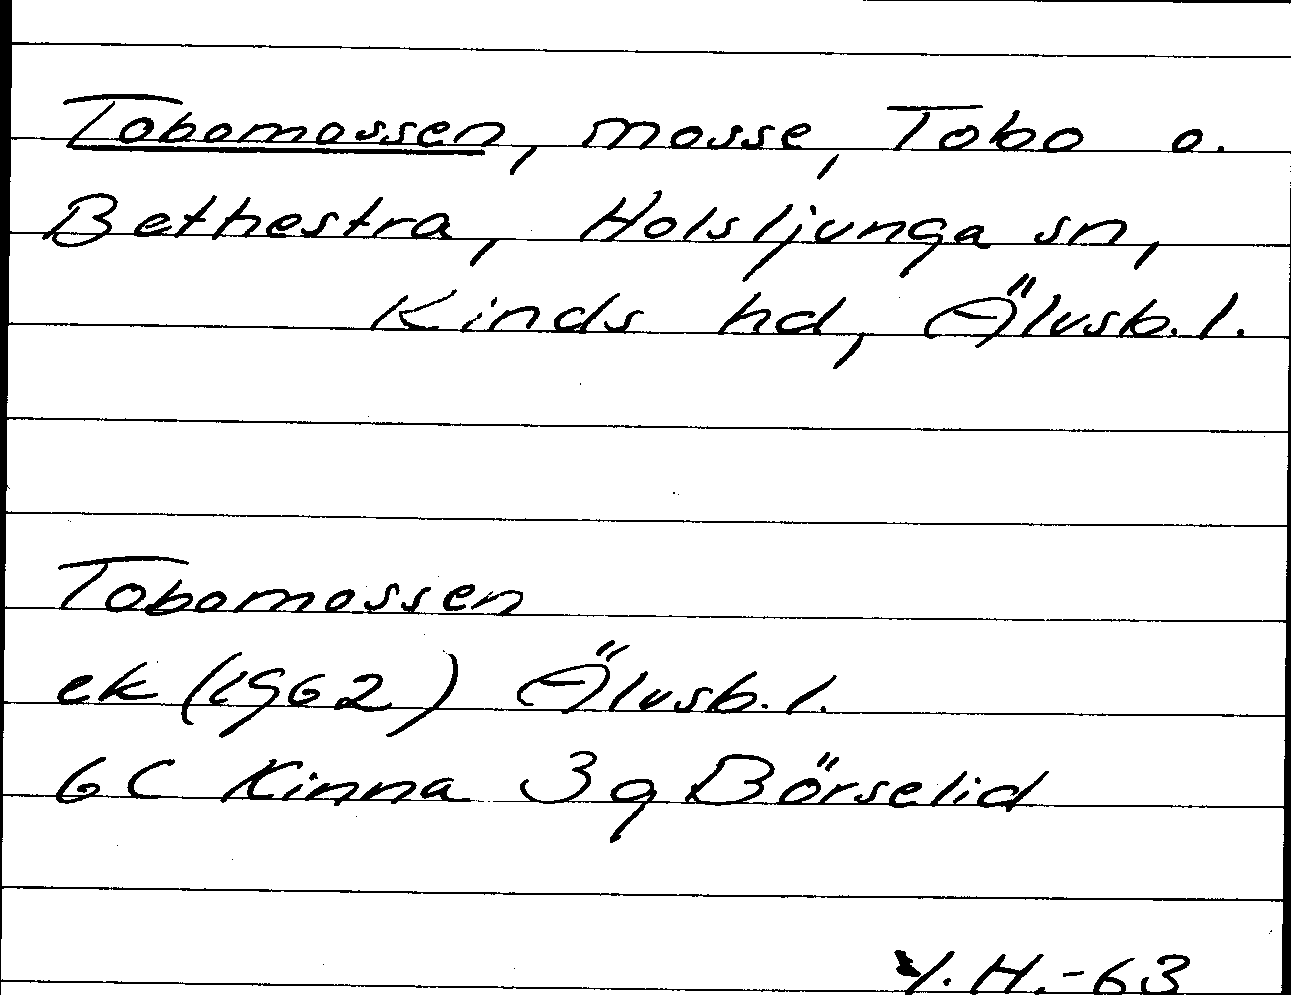 Tobomossen, mosse, Tobo o.
Bethestra, Holsljunga sn,
Kinds hd, Älvsb. l.
Tobomossen
ek (1962) Älvsb. l.
6 C Kinna 3 g Börselid
Y. H. -63